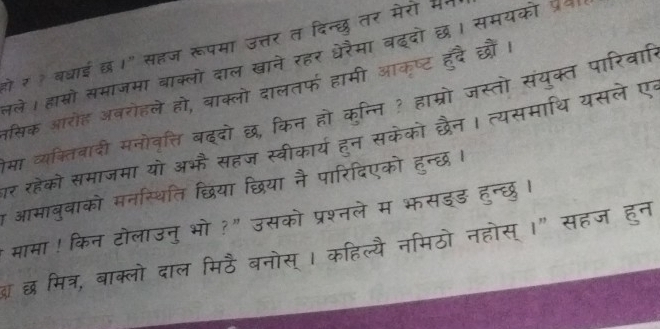 हो र ? बधाई छ ।" सहज रूपमा उत्तर त दिन्छु तर मेरो
हाम्रो समाजमा बाक्लो दाल खाने रहर धेरैमा बढ्दो छ । समयको
आरोह अवरोहले हो, बाक्लो दालतर्फ हामी आकृष्ट हुँदै छौँ ।
व्यक्तिवादी मनोवृत्ति बढ्दो छ, किन हो कुन्नि ? हाम्रो जस्तो संयुक्त
रहेको समाजमा यो अझै सहज स्वीकार्य हुन सकेको छैन । त्यसमाथि यसले
आमाबुवाको मनस्थिति छिया छिया नै पारिदिएको हुन्छ ।
मामा ! किन टोलाउनु भो ?" उसको प्रश्नले म झसङ्ङ हुन्छु ।
छ मित्र, बाक्लो दाल मिठै बनोस् । कहिल्यै नमिठो नहोस् ।" सहज हुन